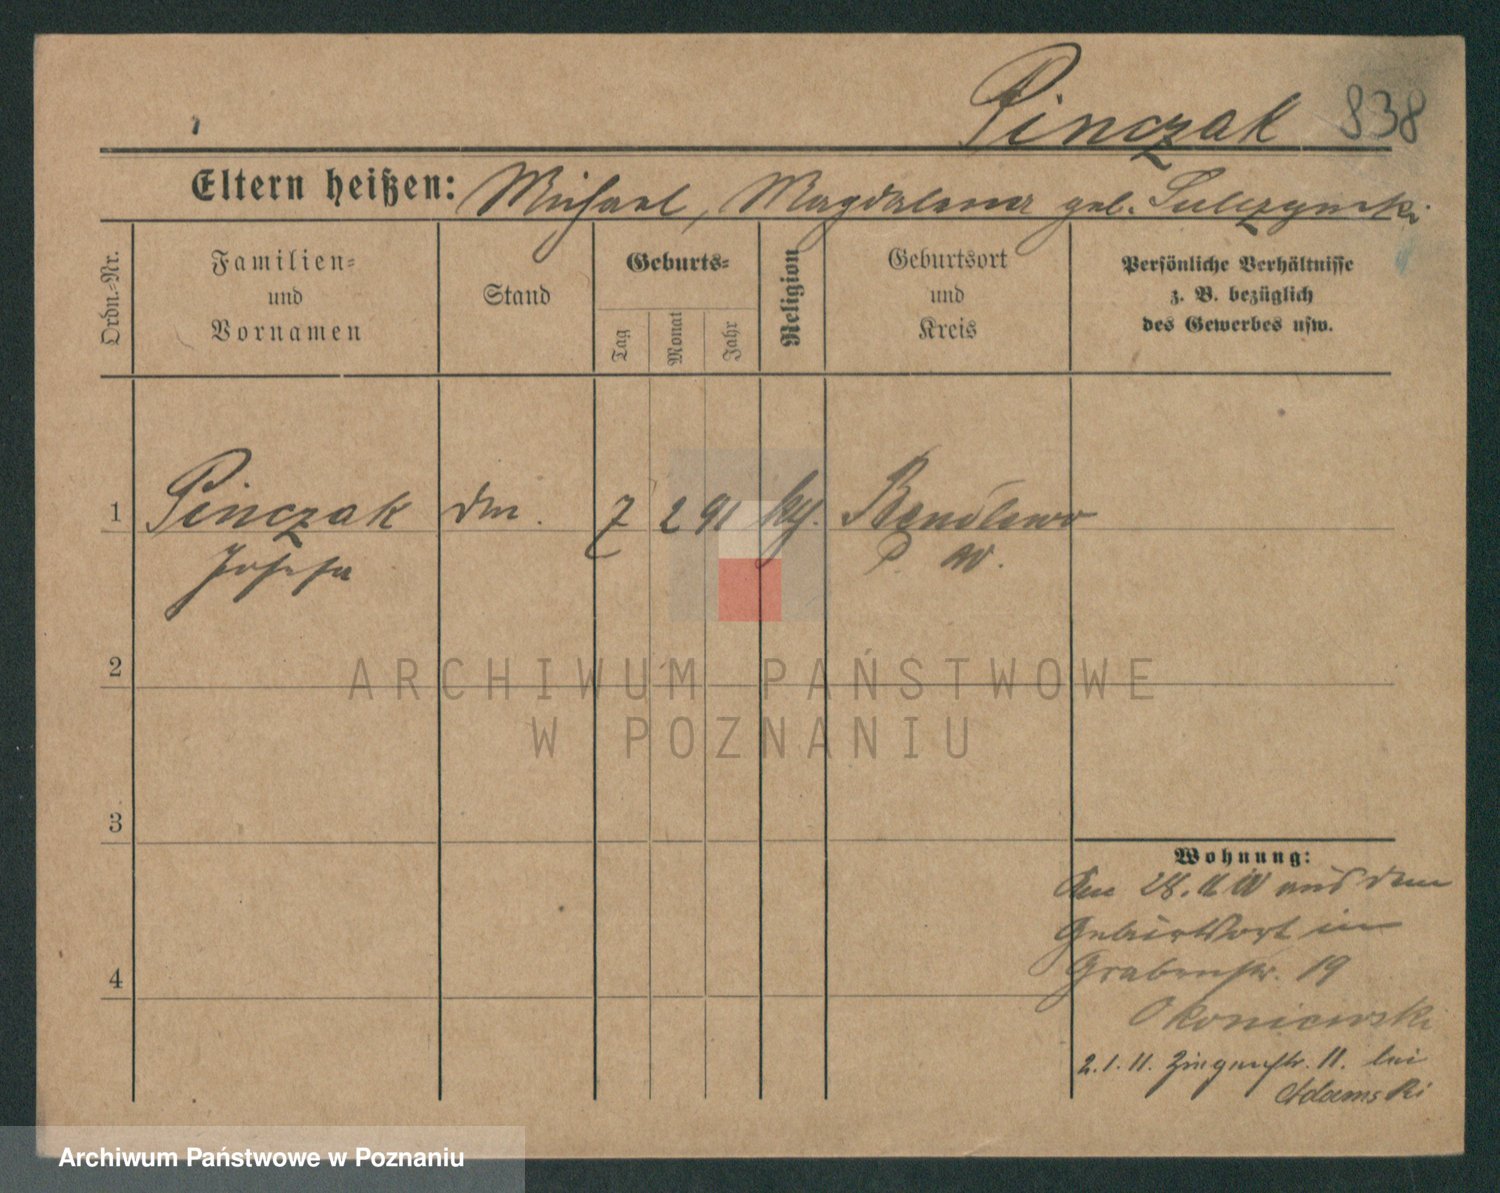 Pinczak 838
Eltern heißen: Michael, Magdalena geb. Sulczynski
Ordn.-Nr.
Familien-
und
Vornamen
Stand
Geburts-
Tag
Monat
Jahr
Religion
Geburtsort
und
Kreis
Persönliche Verhältnisse
z. B. bezüglich
des Gewerbes usw.
1 Pinczak 7 2 91
Josefa P. W.
2
3
4
Wohnung:
aus dem
Geburtsort in
Grabenstr. 19
Okoniewski
2.1.11. 11. bei
Adamski
ARCHIWUM PAŃSTWOWE
W POZNANIU
Archiwum Państwowe w Poznaniu